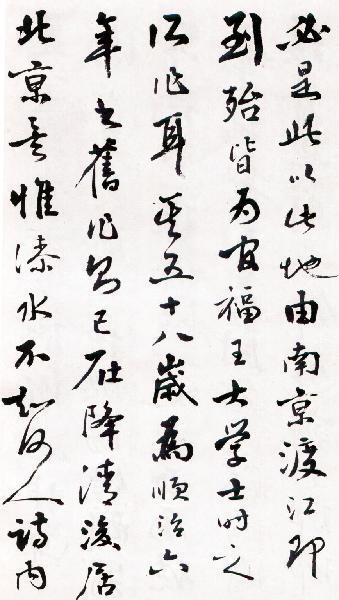 必是此以此地由南京渡江即
到殆皆为官福王大学士时之
所作耳其五十八歲為順治六
年之舊作則已在降清後居
北京矣惟水不知何人詩内